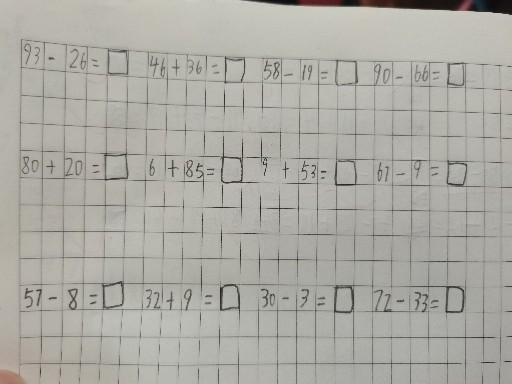 93 - 26 = □ 46 + 36 = □ 58 - 19 = □ 90 - 66 = □
80 + 20 = □ 6 + 85 = □ 9 + 53 = □ 61 - 9 = □
57 - 8 = □ 32 + 9 = □ 30 - 3 = □ 72 - 33 = □